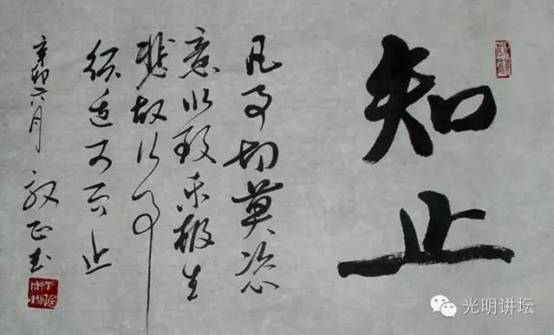 知止
凡事切莫恣
意以致乐极生
悲故行事
须适可而止
辛卯六月
正书
光明讲坛